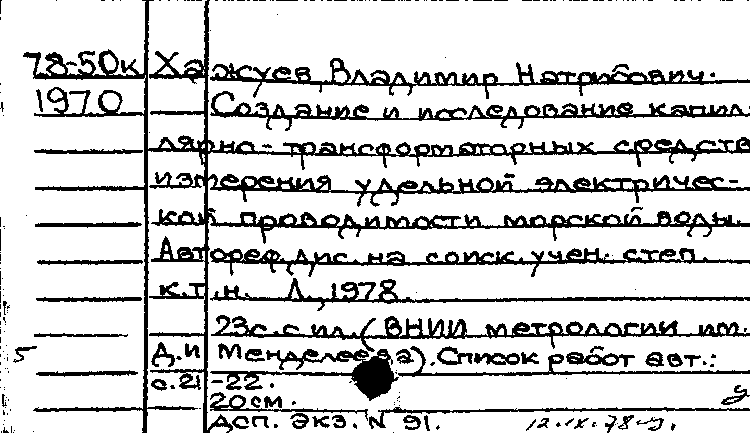 78-50к Хажуев, Владимир Натрибович.
1970 Создание и исследование капил-
лярно-трансформаторных средств
измерения удельной электричес-
кой проводимости морской воды.
Автореф. дис. на соиск. учен. степ.
к.т.н. Л., 1978.
23с. с ил. (ВНИИ метрологии им.
5 Д.И Менделеева). Список работ авт.:
с.21-22.
20см.
ДСП. экз. N 91. 12.IX.78